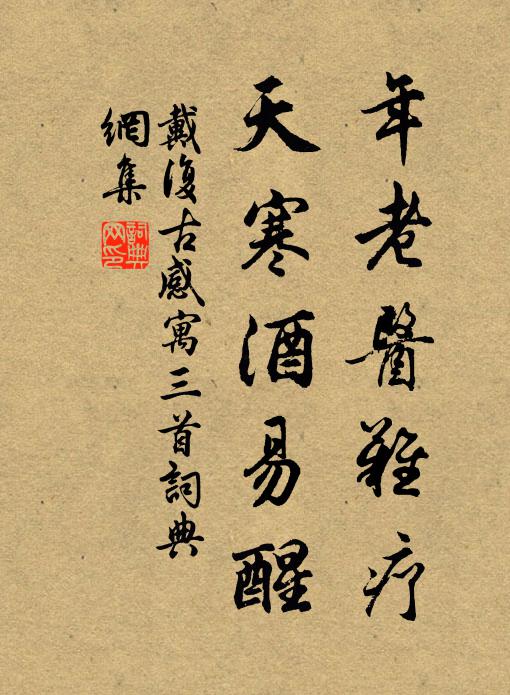 年老醫難疗
天寒酒易醒
戴復古感寓三首詞典
網集
詞典
网印